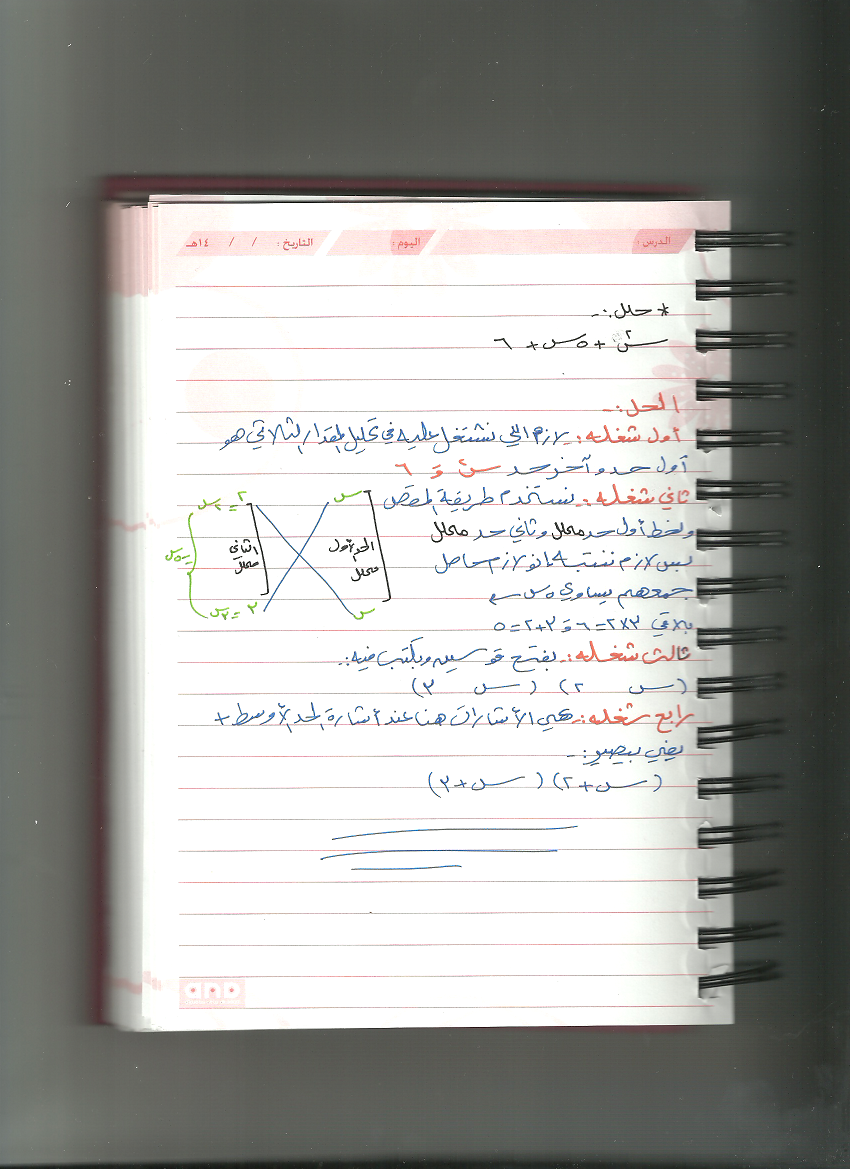 الدرس :
اليوم :
التاريخ : / / ١٤هـ
* حلل :-
س٢ + ٥س + ٦
الحل :-
أول شغله :- لازم الي نشتغل عليه في تحليل المقدار الثلاثي هو
أول حد و آخر حد س٢ و ٦
ثاني شغله :- نستخدم طريقة المقص
ونحط أول حد محلل وثاني حد محلل
بس لازم ننتبه انو لازم حاصل
جمعهم يساوي ٥س
بلاقي ٣×٢ = ٦ و ٣+٢ = ٥
س
س
الحد الأول
محلل
الثاني
محلل
٢ = ٢س
٣ = ٣س
= ٥س
ثالث شغله :- بفتح قوسين وبكتب فيه :-
(س ٢) (س ٣)
رابع شغله :- هي الأشارات هنا عند أشارة الحد الأوسط +
يعني بيصير :-
(س + ٢) (س + ٣)
and